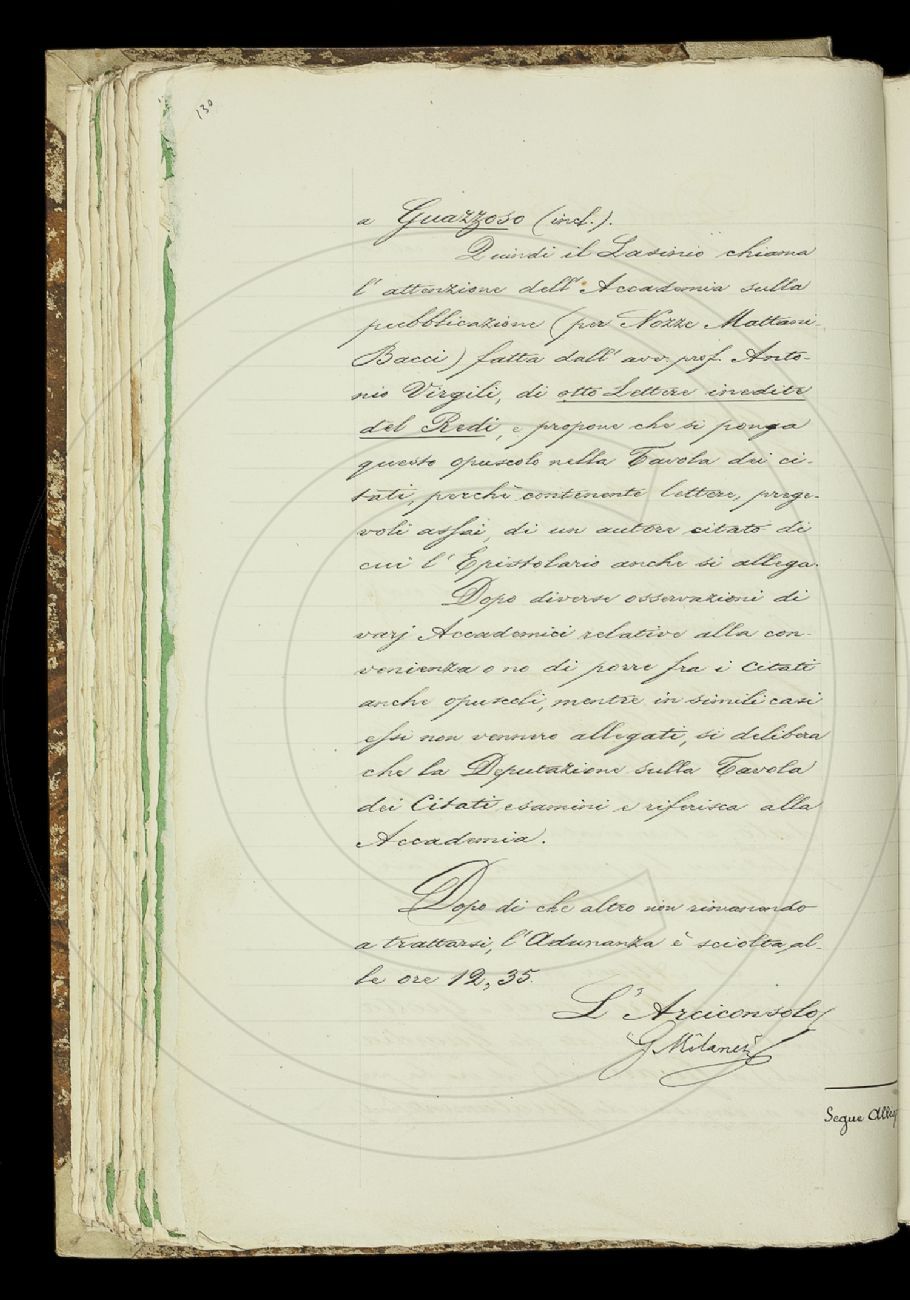 130
a Guazzoso (incl.).
Quindi il Lasinio chiama
l'attenzione dell'Accademia sulla
pubblicazione (per Nozze Mattani-
Bacci) fatta dall'avv. prof. Anto-
nio Virgili, di otto Lettere inedite
del Redi, e propone che si ponga
questo opuscolo nella Tavola dei ci-
tati, perchè contenente lettere, prege-
voli assai, di un autore citato di
cui l'Epistolario anche si allega.
Dopo diverse osservazioni di
varj Accademici relative alla con-
venienza o no di porre fra i Citati
anche opuscoli, mentre in simili casi
essi non vennero allegati, si delibera
che la Deputazione sulla Tavola
dei Citati esamini e riferisca alla
Accademia.
Dopo di che altro non rimanendo
a trattarsi, l'Adunanza è sciolta al-
le ore 12,35.
L'Arciconsolo
G Milanesi
Segue Alleg